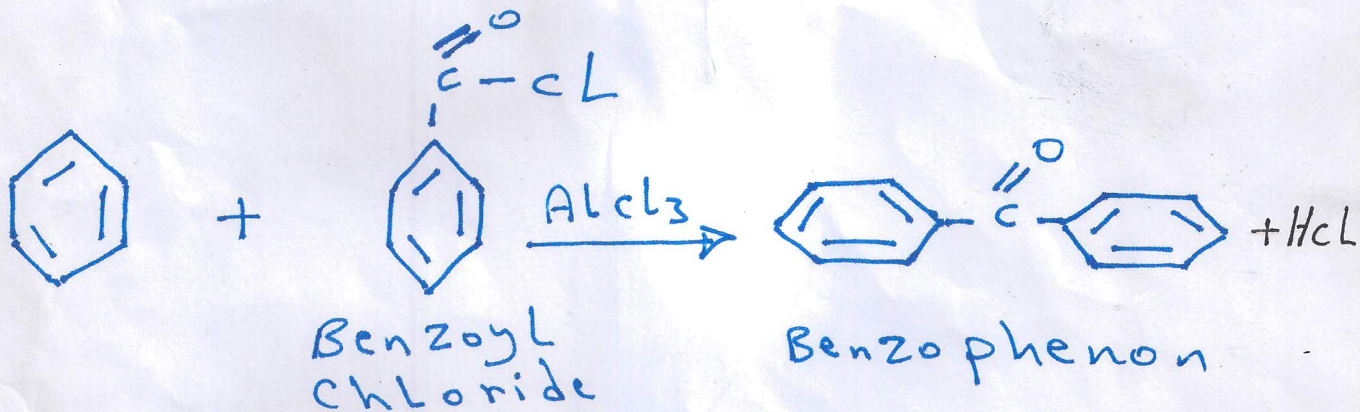 O
C - CL
+
ALCL3
O
C
+HCL
Benzoyl
Chloride
Benzophenon